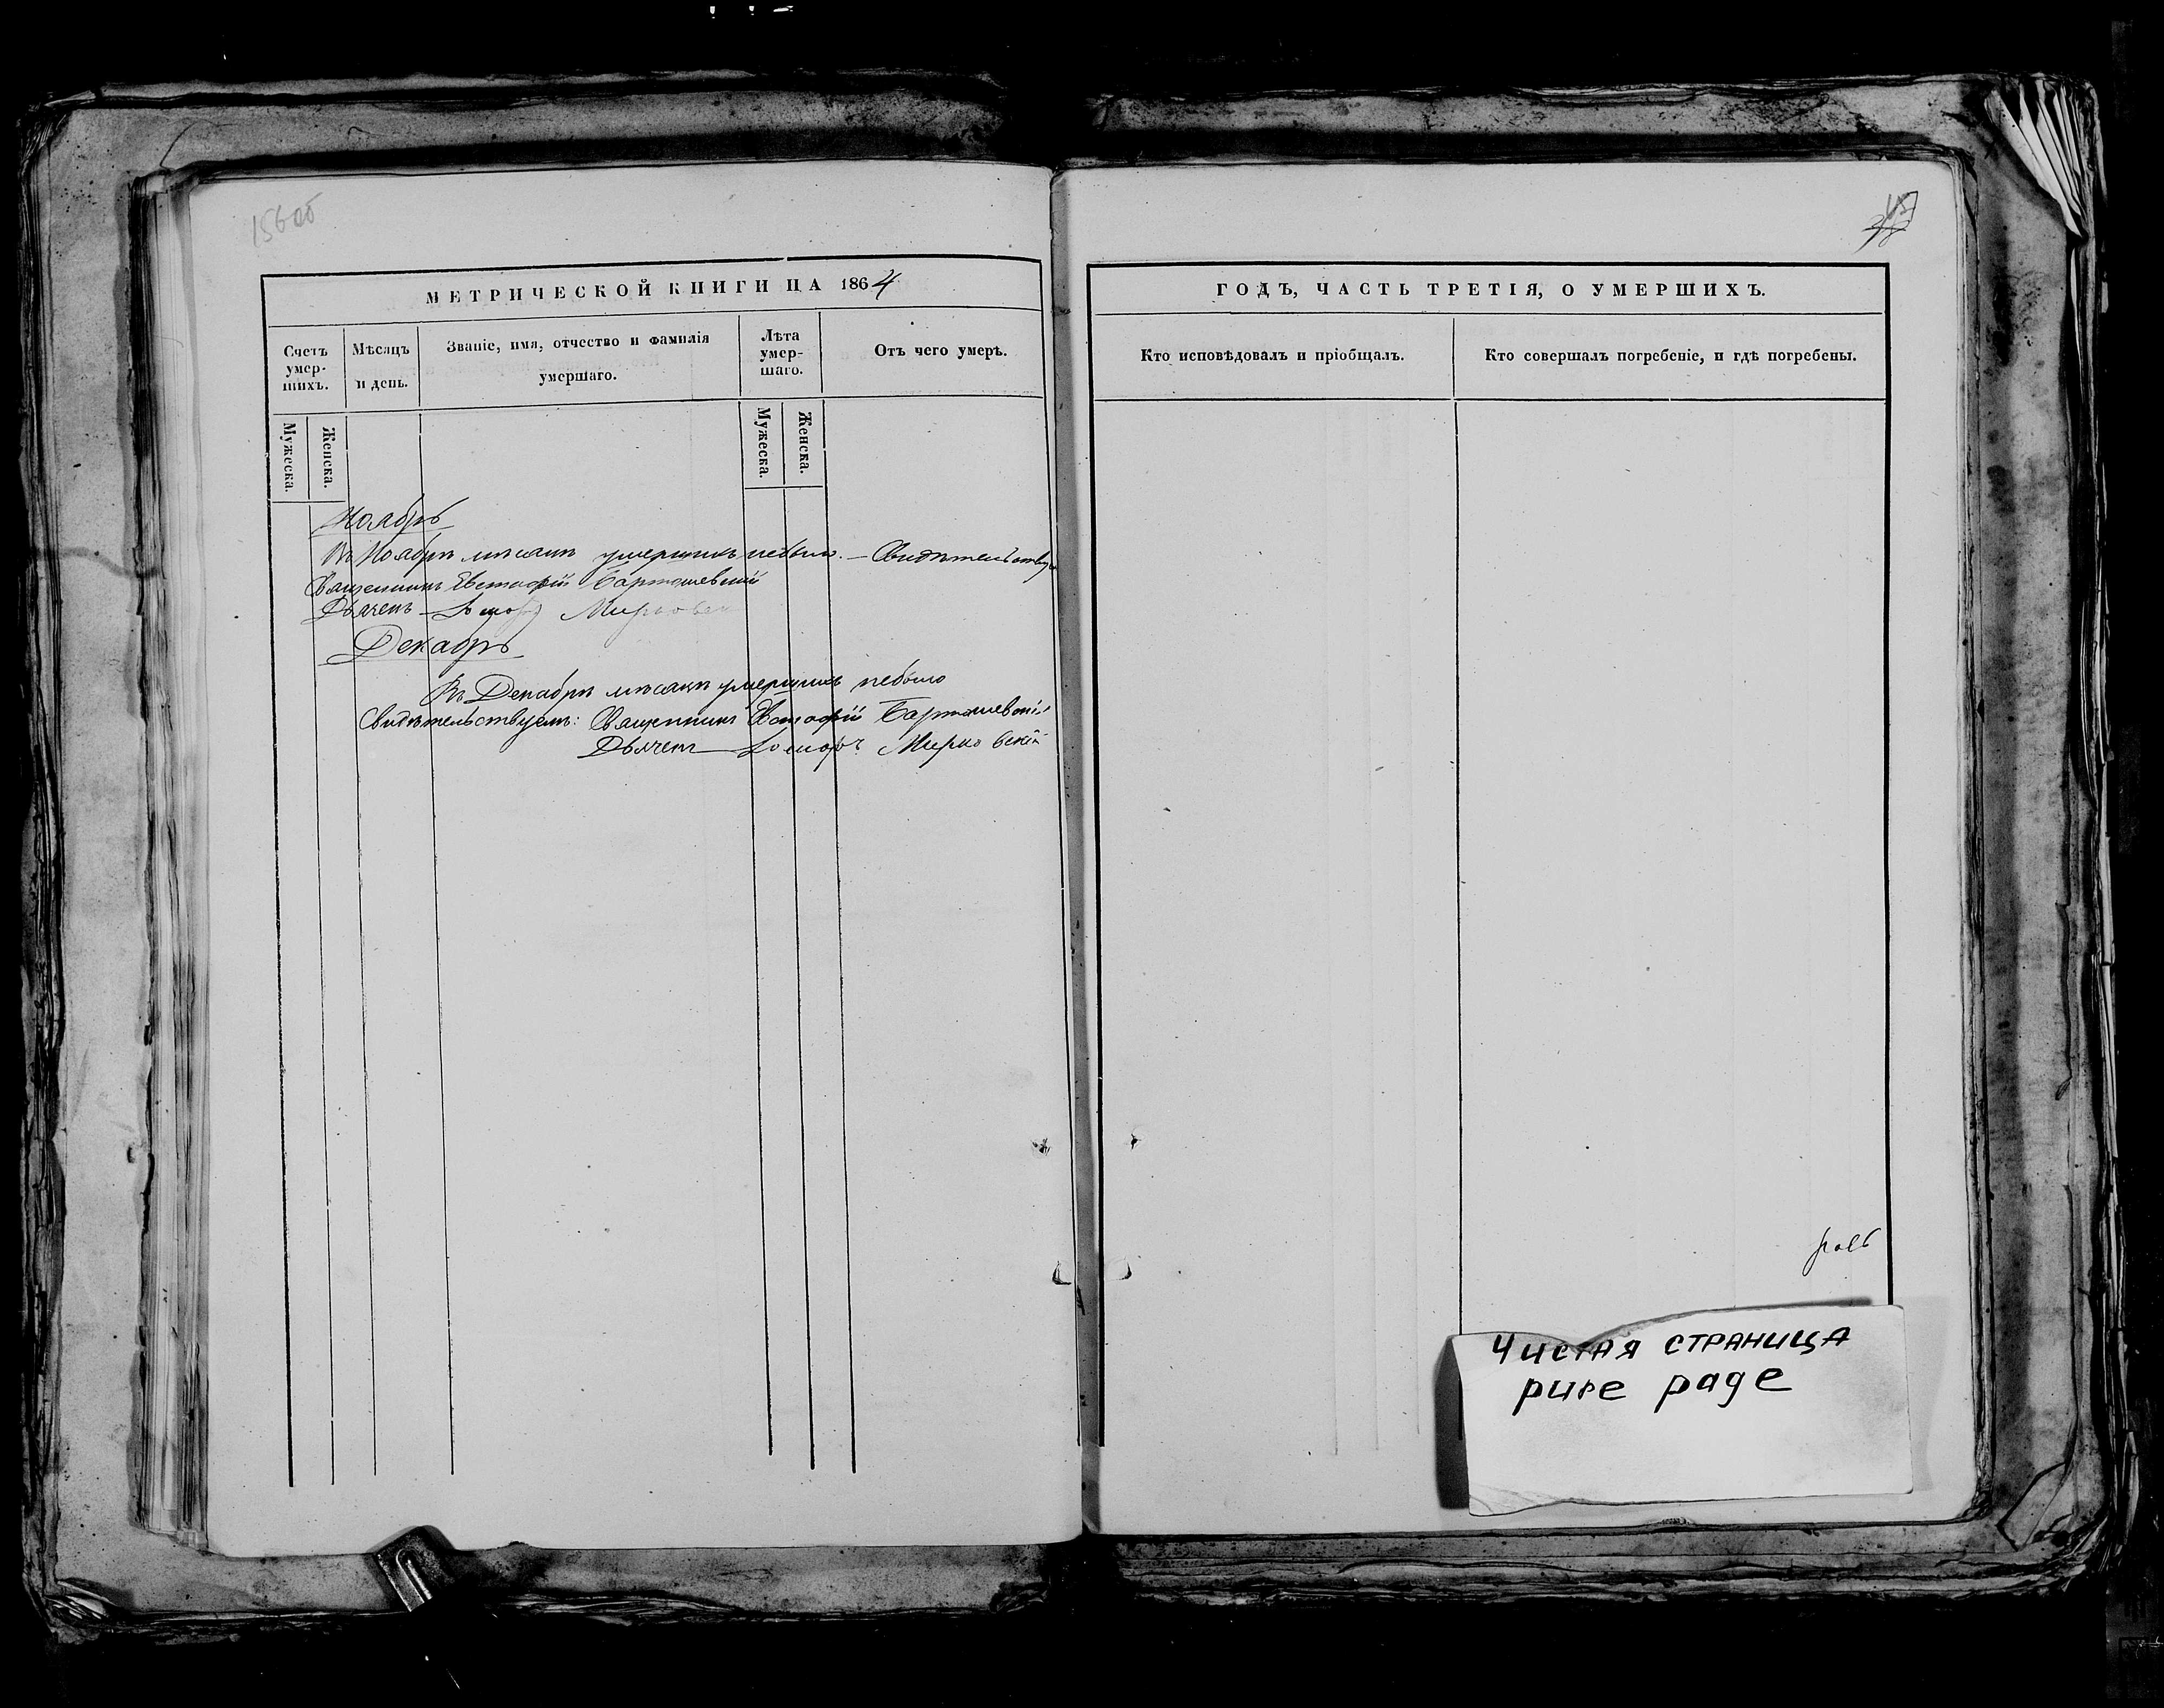 156об
МЕТРИЧЕСКОЙ КНИГИ НА 1864
Счетъ умер-шихъ.
Мѣсяцъ и день.
Званіе, имя, отчество и фамилія умершаго.
Лѣта умер-шаго.
Отъ чего умеръ.
Мужеска.
Женска.
Мужеска
Женска.
Ноябрь
Въ Ноябрѣ мѣсяцѣ умершихъ небыло. — Свидѣтельствуемъ
Священникъ Евстафій Бартошевскій
Дьячекъ
Декабрь
Въ Декабрѣ мѣсяцѣ умершихъ небыло
Свидѣтельствуемъ: Священникъ Евстафій Бартошевскій
Дьячекъ Мирковскій
ГОДЪ, ЧАСТЬ ТРЕТІЯ, О УМЕРШИХЪ.
Кто исповѣдовалъ и пріобщалъ.
Кто совершалъ погребеніе, и гдѣ погребены.
Чистая страница
pure page